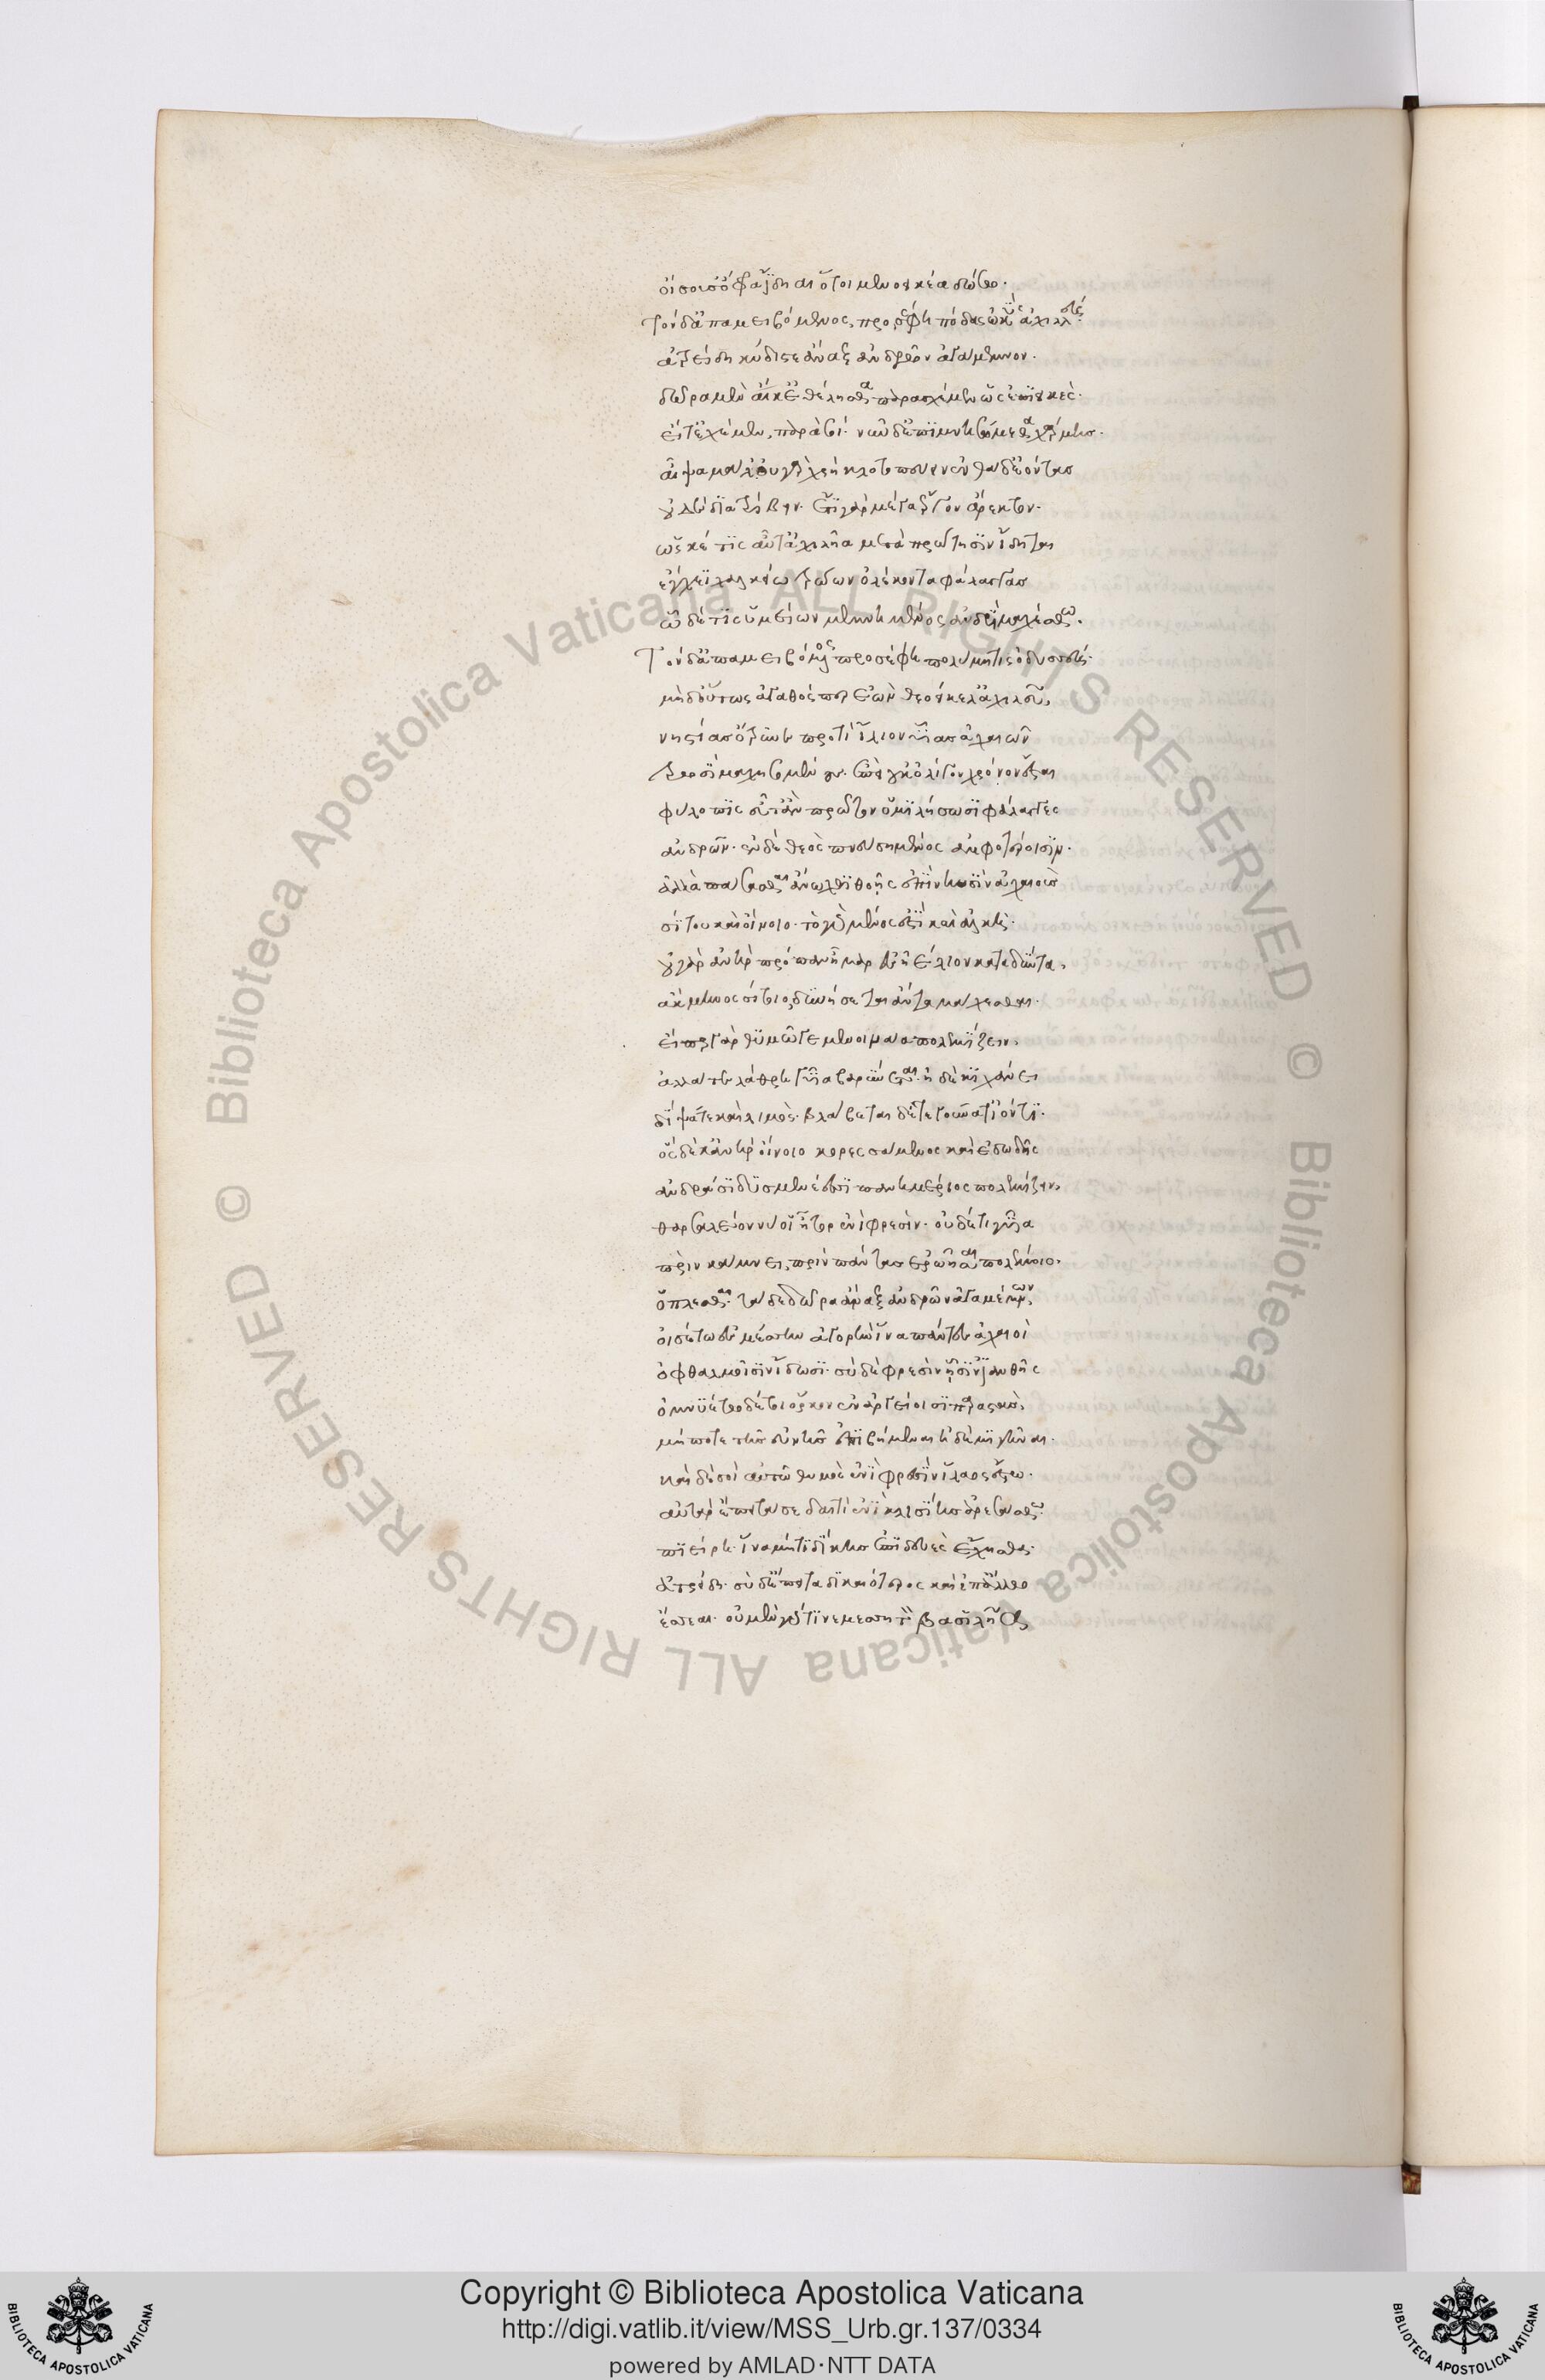 οἴσουσ' ὄφρα ἴδηαι ὅ τοι μενοεικέα δώσω.
Τὸν δ' ἀπαμειβόμενος προσέφη πόδας ὠκὺς ἀχιλλεύς.
ἀτρείδη κύδιστε ἄναξ ἀνδρῶν ἀγάμεμνον.
δῶρα μὲν αἴ κ' ἐθέλησθα παρασχέμεν ὡς ἐπιεικές.
εἴτ' ἐχέμεν, παρὰ σοί. νῦν δ' ἐπιμνησώμεθα χάρμης.
αἶψα μάλ' οὐ γὰρ χρὴ κλοτοπεύειν ἐνθάδ' ἐόντας
οὐδὲ διατρίβειν. ἔτι γὰρ μέγα ἔργον ἄρεκτον.
ὥς κέ τις αὖτ' ἀχιλῆα μετὰ πρώτοισιν ἴδηται
ἔγχεϊ χαλκείω Τρώων ὀλέκοντα φάλαγγας
ὧδέ τις ὑμείων μεμνημένος ἀνδρὶ μαχέσθω.
Τὸν δ' ἀπαμειβόμενος προσέφη πολύμητις ὀδυσσεύς.
μὴ δ' οὕτως ἀγαθός περ ἐὼν θεοείκελ' ἀχιλλεῦ,
νήστιας ὄτρυνε προτὶ ἴλιον υἷας ἀχαιῶν
Τρωσὶ μαχησομένους. ἐπεὶ οὐκ ὀλίγον χρόνον ἔσται
φύλοπις εὖτ' ἂν πρῶτον ὁμιλήσωσι φάλαγγες
ἀνδρῶν. ἐν δὲ θεὸς πνεύση μένος ἀμφοτέροισιν.
ἀλλὰ πάσασθαι ἄνωχθι θοῆς ἐπὶ νηυσὶν ἀχαιοὺς
σίτου καὶ οἴνοιο. τὸ γὰρ μένος ἐστὶ καὶ ἀλκή.
οὐ γὰρ ἀνὴρ πρόπαν ἦμαρ ἐς ἠέλιον καταδύντα,
ἄκμηνος σίτοιο, δυνήσεται ἄντα μάχεσθαι.
εἴπερ γὰρ θυμῶ γε μενοινάα πολεμίζειν,
ἀλλά τε λάθρη γυῖα βαρύνεται. ἠδὲ κιχάνει
δίψα τε καὶ λιμός. βλάβεται δέ τε γούνατ' ἰόντι.
ὃς δέ κ' ἀνὴρ οἴνοιο κορεσσάμενος καὶ ἐδωδῆς
ἀνδράσι δυσμενέεσσι πανημέριος πολεμίζει,
θαρσαλέον νύ οἱ ἦτορ ἐνὶ φρεσίν. οὐδέ τι γυῖα
πρὶν κάμνει, πρὶν πάντας ἐρωῆσαι πολέμοιο.
ὅπλεσθαι. τὰ δὲ δῶρα ἄναξ ἀνδρῶν ἀγαμέμνων,
οἰσέτω ἐς μέσσην ἀγορὴν ἵνα πάντες ἀχαιοὶ
ὀφθαλμοῖσιν ἴδωσι. σὺ δὲ φρεσὶν ᾗσιν ἰανθῇς
ὀμνυέτω δέ τοι ὅρκον ἐν ἀργείοισι παραστάς,
μήποτε τῆς εὐνῆς ἐπιβήμεναι ἠδὲ μιγῆναι.
καὶ δὲ σοὶ αὐτῶ θυμὸς ἐνὶ φρεσὶν ἵλαος ἔστω.
αὐτὰρ ἔπειτά σε δαιτὶ ἐνὶ κλισίης ἀρεσάσθω.
πιείρη. ἵνα μήτι δίκης ἐπιδευὲς ἔχησθα.
ἀτρείδη. σὺ δ' ἔπειτα δικαιότερος καὶ ἐπ' ἄλλω
ἔσσεαι. οὐ μὲν γάρ τι νεμεσσητὸν βασιλῆα
Copyright © Biblioteca Apostolica Vaticana
http://digi.vatlib.it/view/MSS_Urb.gr.137/0334
powered by AMLAD·NTT DATA